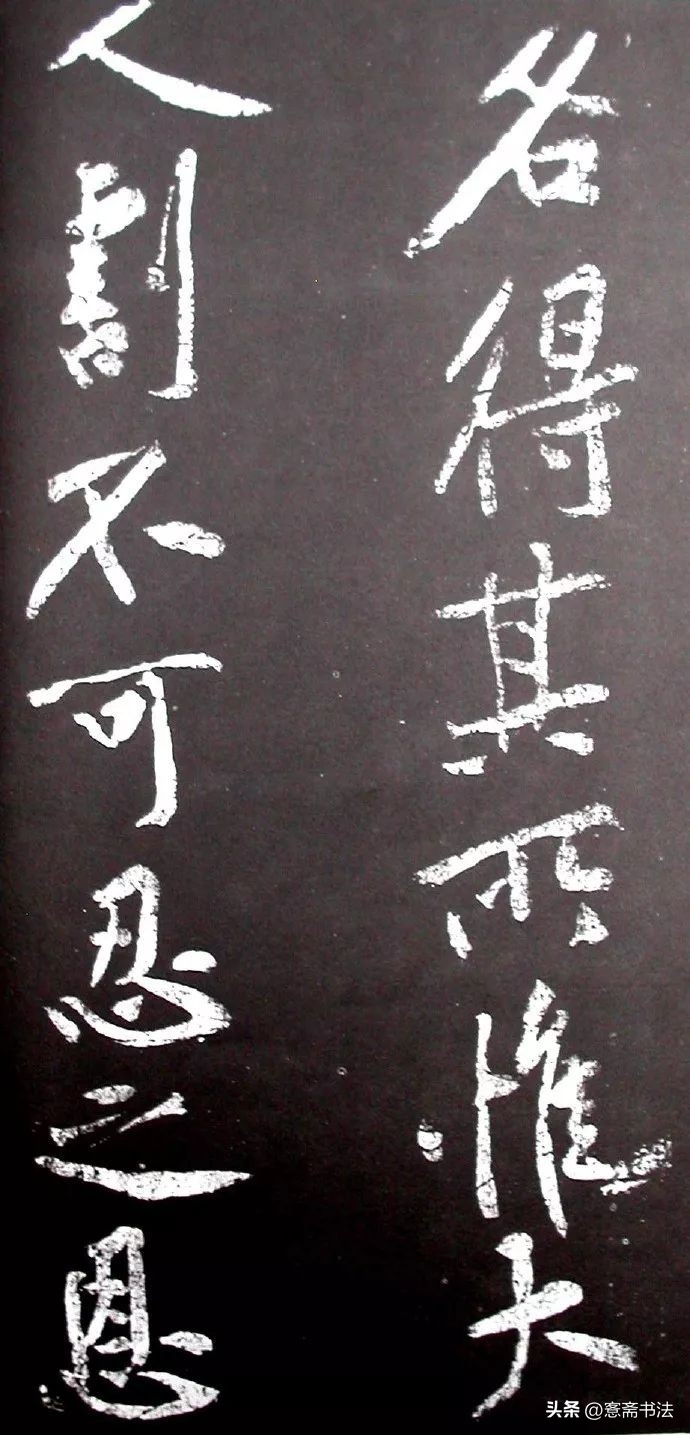 各得其所惟大
人割不可忍之恩
头条 @窓斋书法